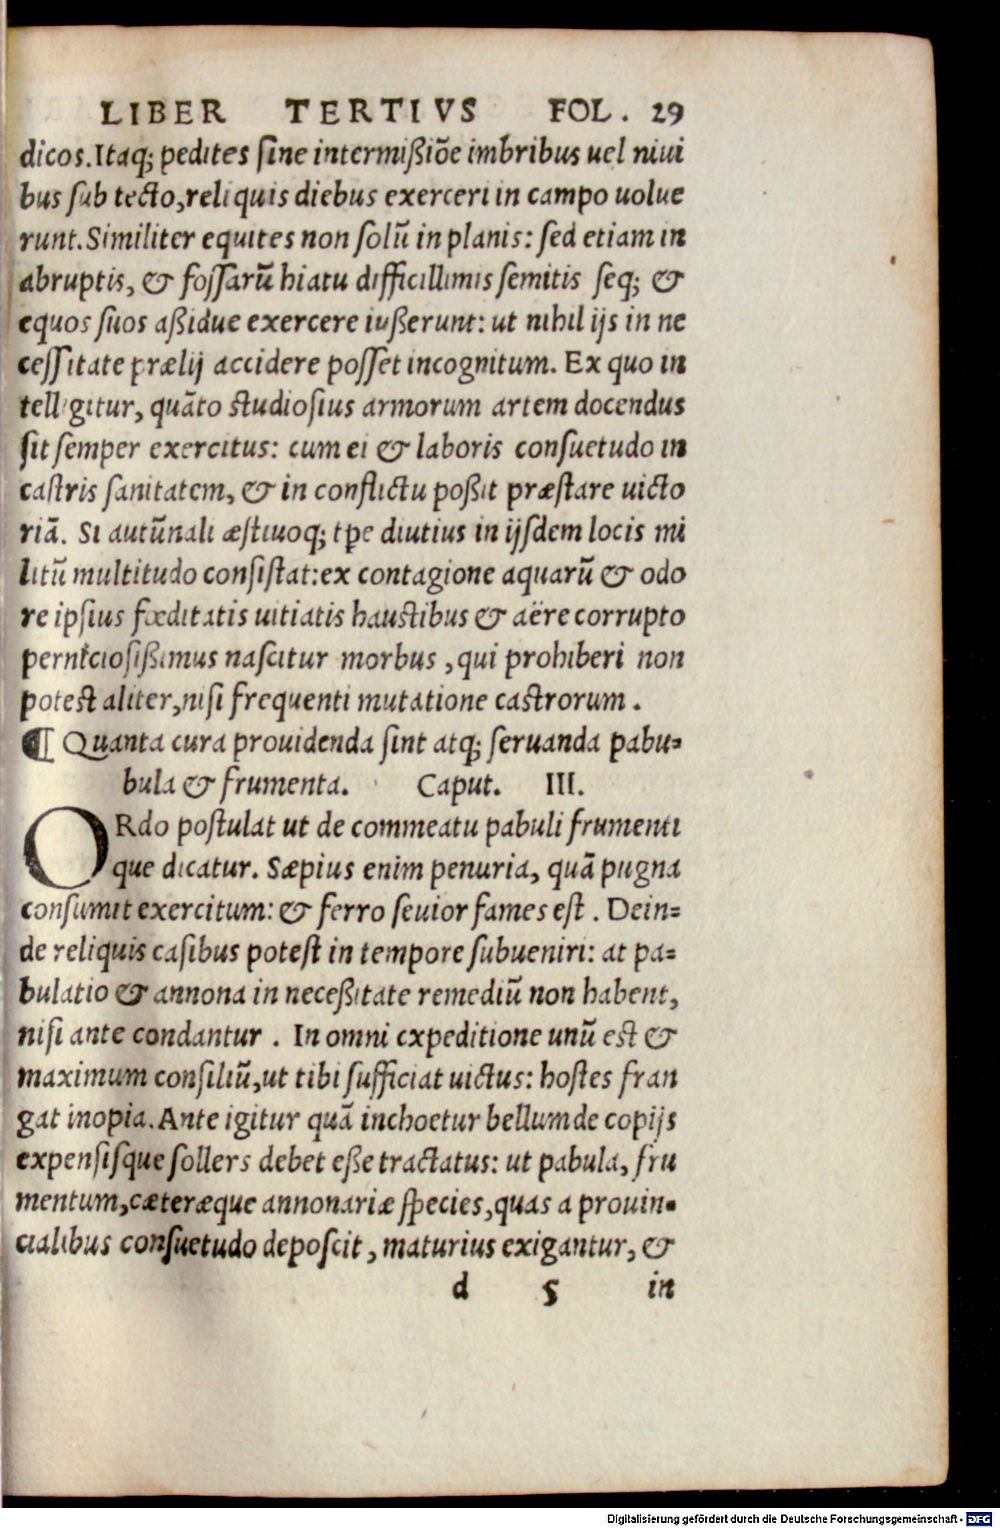 LIBER TERTIVS FOL. 29
dicos. Itaq; pedites ſine intermißiõe imbribus uel niui
bus ſub tecto, reliquis diebus exerceri in campo uolue
runt. Similiter equites non ſolũ in planis: ſed etiam in
abruptis, & foſſarũ hiatu difficillimis ſemitis ſeq; &
equos ſuos aßidue exercere iußerunt: ut nihil ijs in ne
ceſſitate prælij accidere poſſet incognitum. Ex quo in
telligitur, quãto ſtudioſius armorum artem docendus
ſit ſemper exercitus: cum ei & laboris conſuetudo in
caſtris ſanitatem, & in conflictu poßit præſtare uicto
riã. Si autũnali æſtiuoq; tpe diutius in ijſdem locis mi
litũ multitudo conſiſtat: ex contagione aquarũ & odo
re ipſius fœditatis uitiatis hauſtibus & aëre corrupto
pernicioſißimus naſcitur morbus, qui prohiberi non
poteſt aliter, niſi frequenti mutatione caſtrorum.
¶ Quanta cura prouidenda ſint atq; ſeruanda pabu=
bula & frumenta. Caput. III.
ORdo poſtulat ut de commeatu pabuli frumenti
que dicatur. Sæpius enim penuria, quã pugna
conſumit exercitum: & ferro ſeuior fames eſt. Dein=
de reliquis caſibus poteſt in tempore ſubueniri: at pa=
bulatio & annona in neceßitate remediũ non habent,
niſi ante condantur. In omni expeditione unũ eſt &
maximum conſiliũ, ut tibi ſufficiat uictus: hoſtes fran
gat inopia. Ante igitur quã inchoetur bellum de copijs
expenſiſque ſollers debet eße tractatus: ut pabula, fru
mentum, cæteræque annonariæ ſpecies, quas a prouin=
cialibus conſuetudo depoſcit, maturius exigantur, &
d 5 in
Digitalisierung gefördert durch die Deutsche Forschungsgemeinschaft - DFG